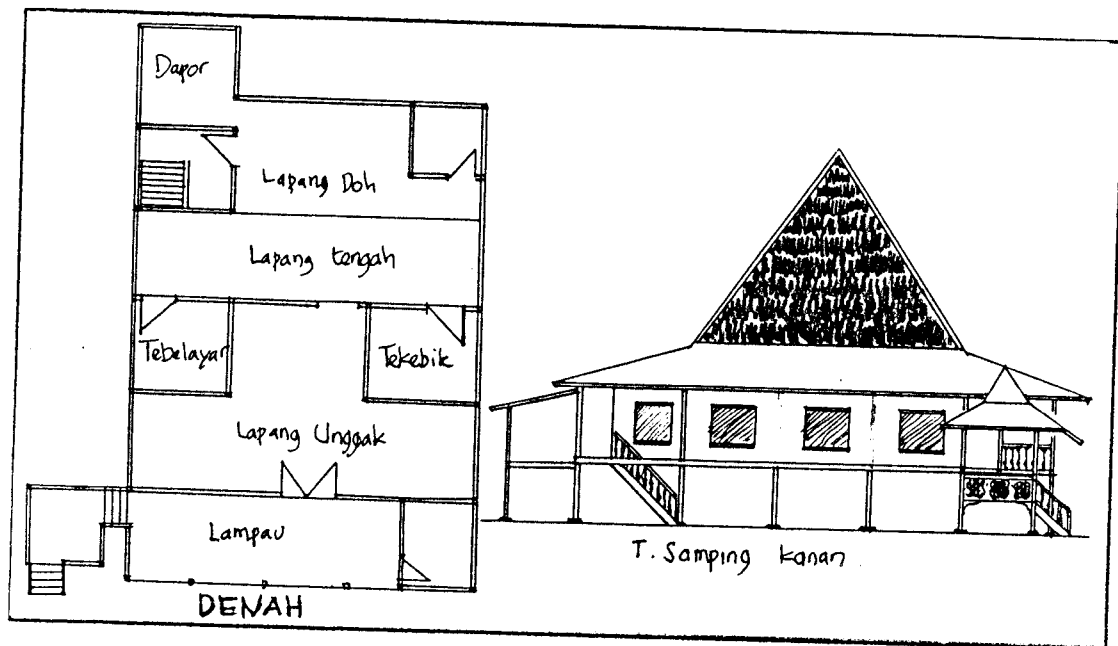 Dapor
Lapang Doh
Lapang tengah
Tebelayar
Tekebik
Lapang Unggak
Lampau
DENAH
T. Samping kanan